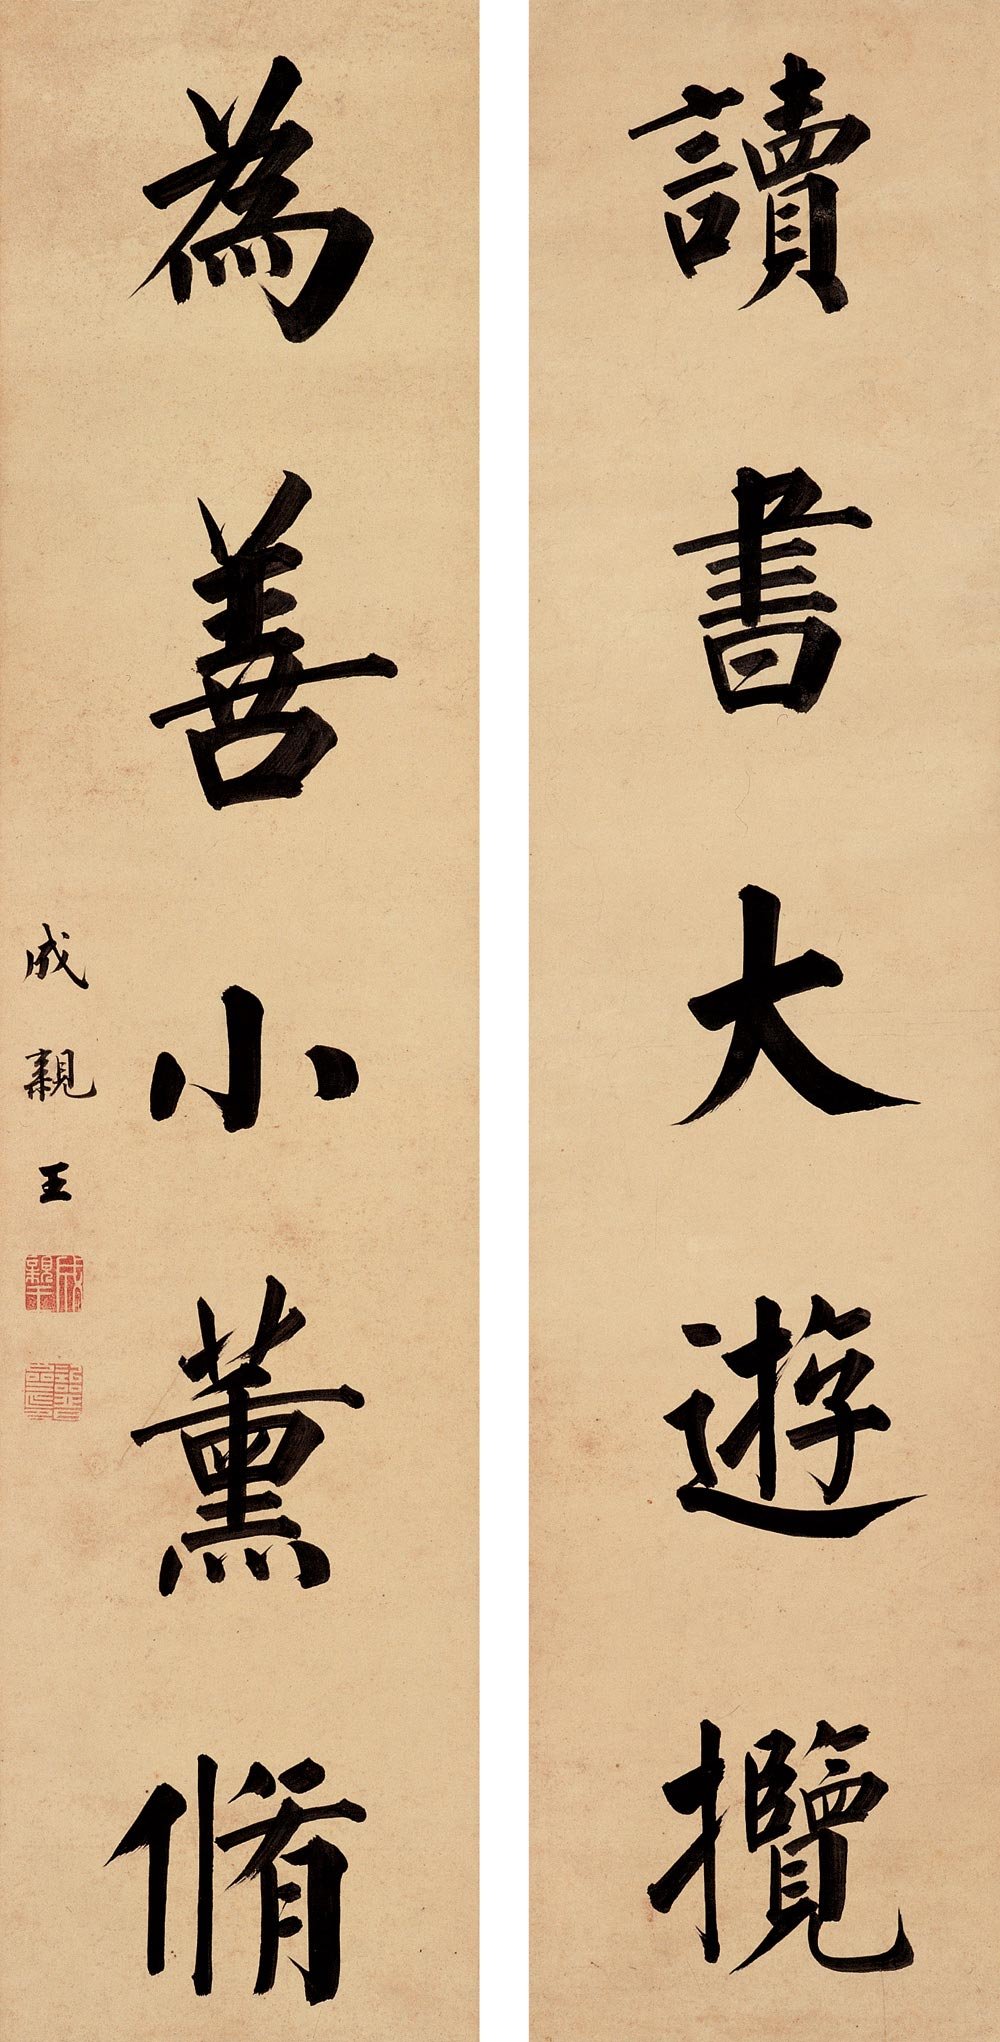 讀書大遊攬
為善小薰脩
成親王
成親王